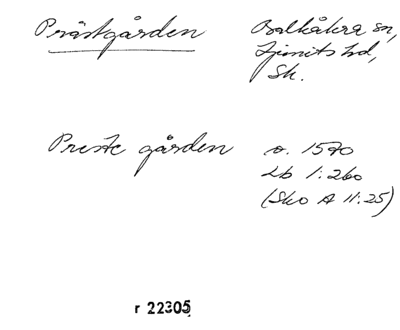 Prästgården Balkåkra sn,
Ljunits hd,
Sk.
Preste gården o. 1570
Lb 1:260
(Sko A II:25)
r 22305